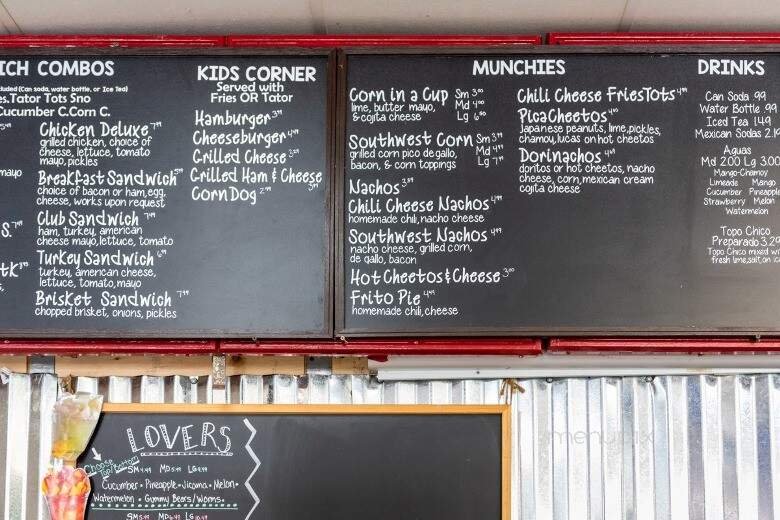 ICH COMBOS
cluded (Can soda, water bottle, or Ice Tea)
es. Tator Tots Sno
Cucumber C. Corn C.
Chicken Deluxe 7⁹⁹
grilled chicken, choice of
cheese, lettuce, tomato
mayo, pickles
mayo
Breakfast Sandwich
choice of bacon or ham, egg,
cheese, works upon request
Club Sandwich 7⁴⁹
ham, turkey, american
cheese mayo, lettuce, tomato
Turkey Sandwich 6⁹⁹
turkey, american cheese,
lettuce, tomato, mayo
Brisket Sandwich 7⁹⁹
chopped brisket, onions, pickles
KIDS CORNER
Served with
Fries OR Tator
Hamburger
Cheeseburger 4⁴⁹
Grilled Cheese
Grilled Ham & Cheese
Corn Dog 2⁹⁹
MUNCHIES
Corn in a Cup Sm 3⁰⁰
lime, butter mayo, Md 4⁰⁰
& cojita cheese Lg 6⁰⁰
Southwest Corn Sm
grilled corn pico de gallo, Md 4⁹⁹
bacon, & corn toppings Lg
Nachos
Chili Cheese Nachos 4⁹⁹
homemade chili, nacho cheese
Southwest Nachos 4⁹⁹
nacho cheese, grilled corn,
de gallo, bacon
Hot Cheetos & Cheese 3⁰⁰
Frito Pie 4⁴⁹
homemade chili, cheese
Chili Cheese Fries Tots 4⁹⁹
PicaCheetos
Japanese peanuts, lime, pickles,
chamoy, lucas on hot cheetos
Dorinachos
doritos or hot cheetos, nacho
cheese, corn, mexican cream
cojita cheese
DRINKS
Can Soda .99
Water Bottle .99
Iced Tea 1.49
Mexican Sodas 2.1
Aguas
Md 2.00 Lg 3.00
Mango-Chamoy
Limeade Mango
Cucumber Pineapple
Strawberry Melon
Watermelon
Topo Chico
Preparado 3.29
Topo Chico mixed wi
fresh lime, salt, on ic
LOVERS
Choose
Top/Bottom
SM 4.99 MD 5.99 LG 8.99
Cucumber • Pineapple • Jicama • Melon •
Watermelon • Gummy Bears/Worms •
menupix